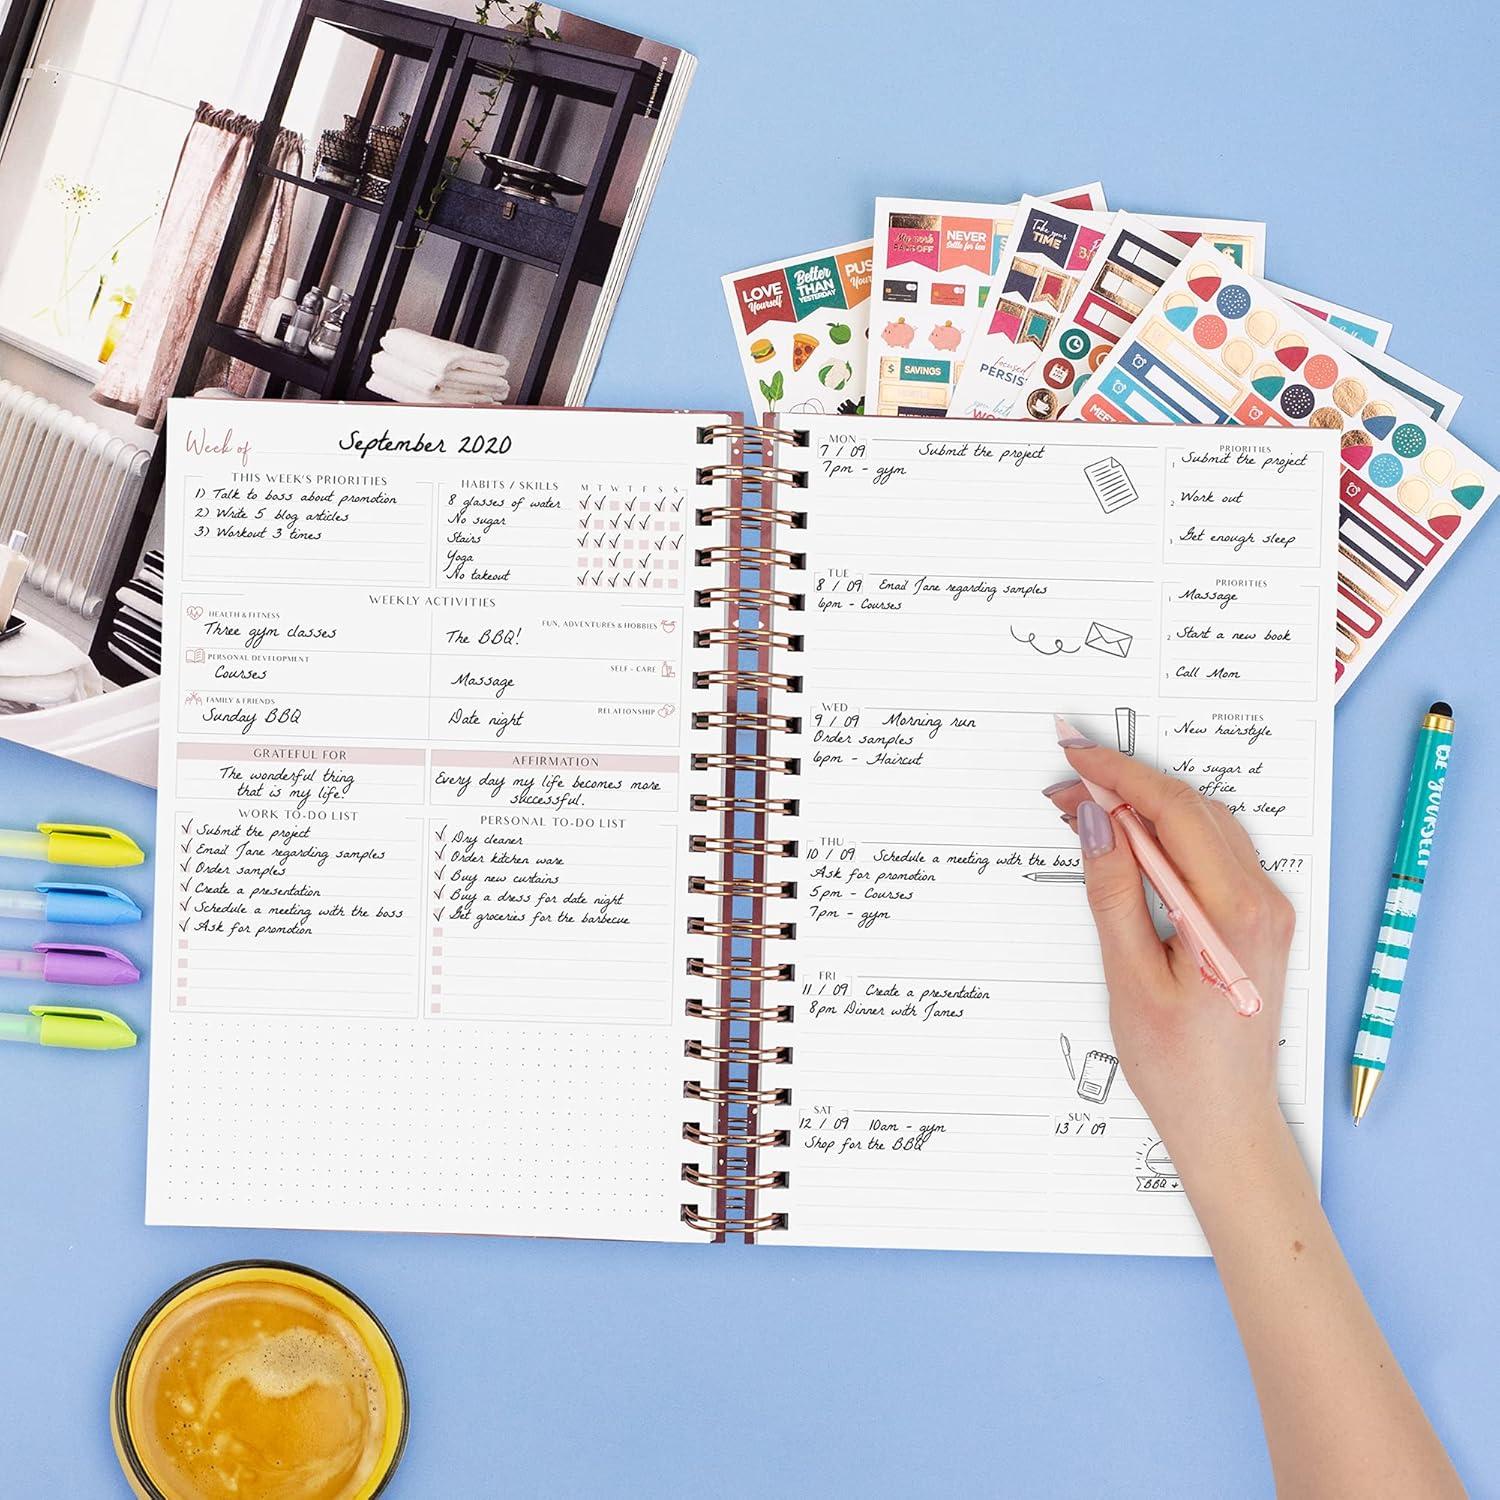 LOVE
Yourself
Better
THAN
YESTERDAY
PUS
You
NEVER
Settle for less
Take your
TIME
$ SAVINGS
focused
PERSIS
MEET
Week of September 2020
THIS WEEK'S PRIORITIES
1) Talk to boss about promotion
2) Write 5 blog articles
3) Workout 3 times
HABITS / SKILLS M T W T F S S
8 glasses of water
No sugar
Stairs
Yoga
No takeout
WEEKLY ACTIVITIES
HEALTH & FITNESS
Three gym classes
FUN, ADVENTURES & HOBBIES
The BBQ!
PERSONAL DEVELOPMENT
Courses
SELF - CARE
Massage
FAMILY & FRIENDS
Sunday BBQ
RELATIONSHIP
Date night
GRATEFUL FOR
The wonderful thing
that is my life!
AFFIRMATION
Every day my life becomes more
successful.
WORK TO-DO LIST
Submit the project
Email Jane regarding samples
Order samples
Create a presentation
Schedule a meeting with the boss
Ask for promotion
PERSONAL TO-DO LIST
Dry cleaner
Order kitchen ware
Buy new curtains
Buy a dress for date night
Get groceries for the barbecue
MON
7 / 09 Submit the project
7pm - gym
PRIORITIES
1 Submit the project
2 Work out
3 Get enough sleep
TUE
8 / 09 Email Jane regarding samples
6pm - Courses
PRIORITIES
1 Massage
2 Start a new book
3 Call Mom
WED
9 / 09 Morning run
Order samples
6pm - Haircut
PRIORITIES
1 New hairstyle
2 No sugar at
office
gh sleep
THU
10 / 09 Schedule a meeting with the boss
Ask for promotion
5pm - Courses
7pm - gym
N???
2
FRI
11 / 09 Create a presentation
8pm Dinner with James
SAT
12 / 09 10am - gym
Shop for the BBQ
SUN
13 / 09
BBQ +
BE YOURSELF